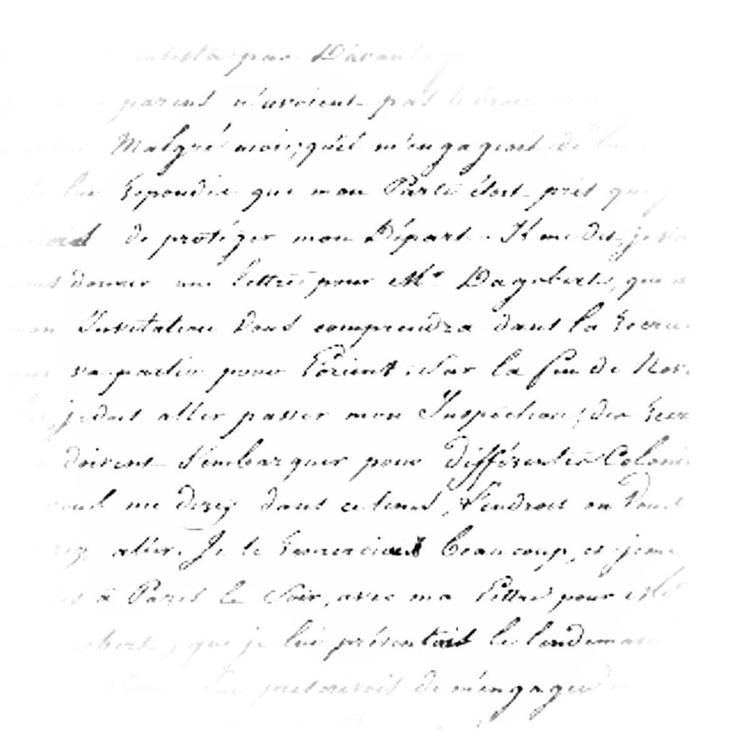 par Davanta
parens n'avoient pas le droit
Malgré moi, qu'il m'engageoit de lui
lui repondis que mon Parti étoit pris
de protéger mon Départ. Il me dit, je
donner une lettre pour Mr. Dagobert, qui a
Invitation vous comprendra dans la
va partir pour Lorient. Sur la fin de Nov.
je dois aller passer mon Inspection, des
doivent s'embarquer pour différentes Colonie
me direz dans ce tems, l'endroit ou vous
aller. Je le remerciais beaucoup, et je me
à Paris le Soir, avec ma lettre pour Mr
obert, que je lui présentois le lendemain
de m'engager